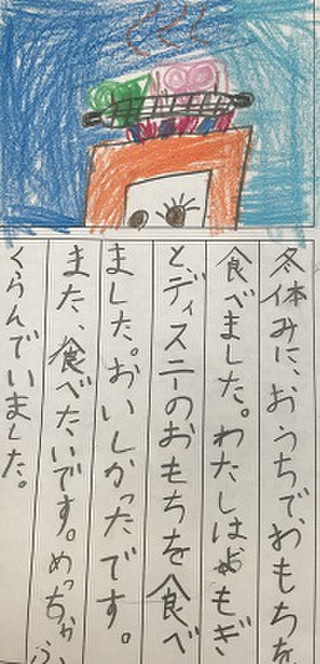 冬休みに、おうちでおもちを
食べました。わたしはよもぎ
と、ディスニーのおもちを食べ
ました。おいしかったです。
また、食べたいです。めっちゃふ
くらんでいました。